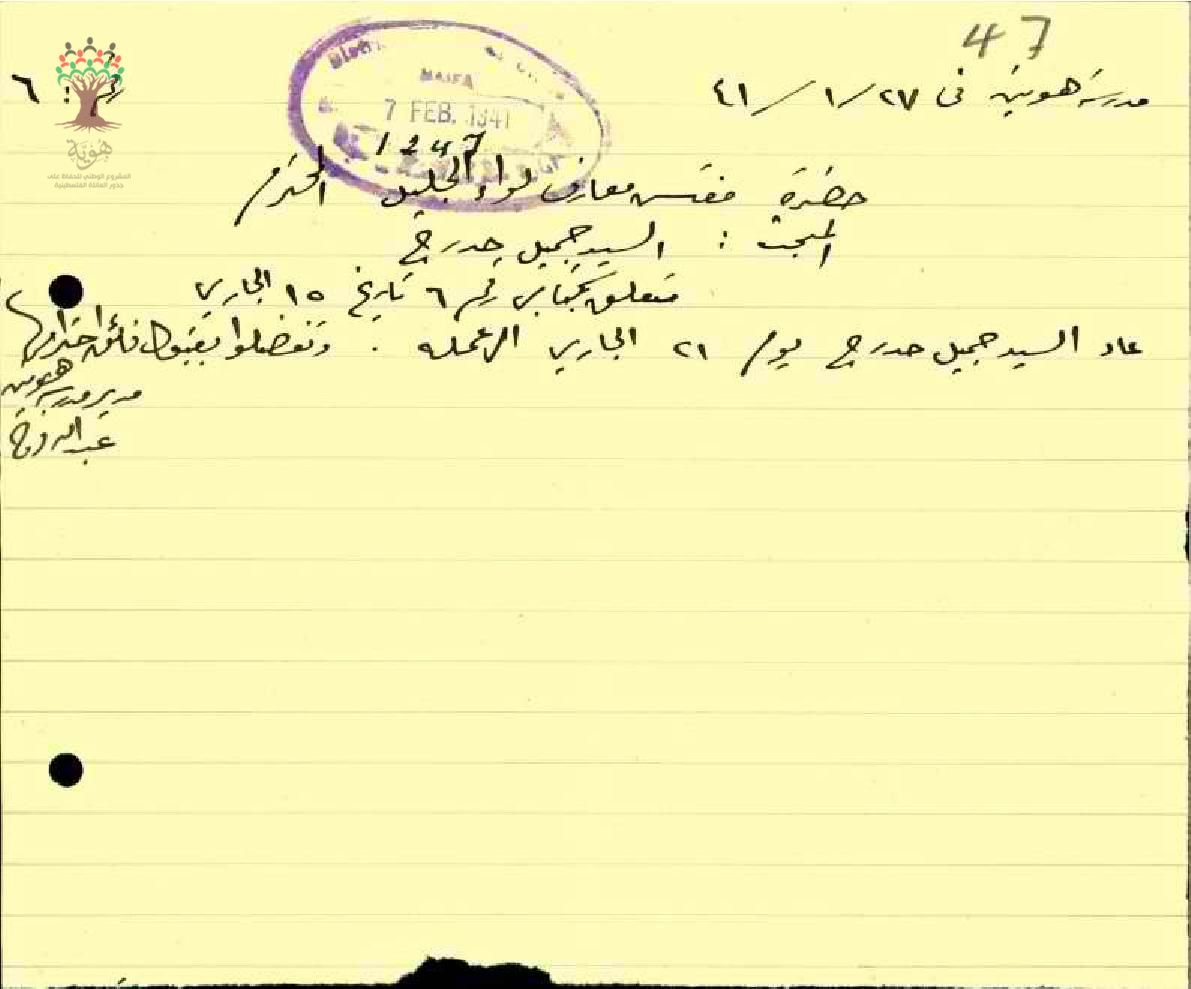 47
مدرسة هونين في ٢٧/١/٤١
رقم: ٦
HAIFA
7 FEB. 1941
1247
حضرة مفتش معارف لواء الجليل المحترم
المبحث: السيد جميل حدرج
متعلق بكتابي رقم ٦ تاريخ ١٥ الجاري
عاد السيد جميل حدرج يوم ٢١ الجاري الى عمله. وتفضلوا بقبول فائق احترامي
مدير مدرسة هونين
هوية
المشروع الوطني للحفاظ على
جذور العائلة الفلسطينية